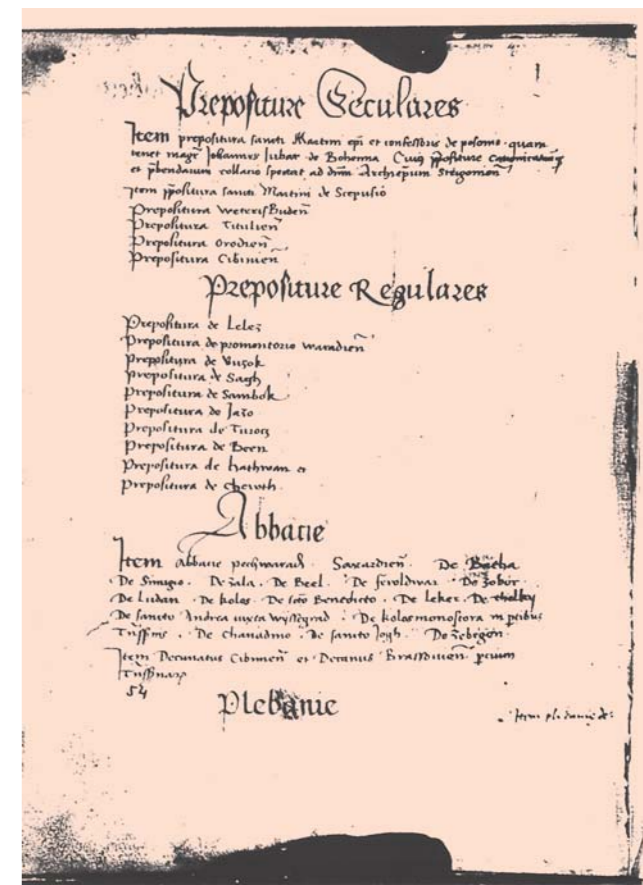 Prepositure Seculares
Item prepositura sancti Martini epi et confessoris de posonio quam
tenet magr Johannes de Bohemia Cuius ppositure
et pbendarum collatio spectat ad dnm Archiepum Strigonien
Item ppositura sancti Martini de Scepusio
Prepositura Weteris Buden
Prepositura Titulien
Prepositura Orodien
Prepositura Cibinien
Prepositure Regulares
Prepositura de Lelez
Prepositura de promontorio waradien
Prepositura de
Prepositura de Sagh
Prepositura de Sambok
Prepositura de Jazo
Prepositura de Turocz
Prepositura de Been
Prepositura de hathwan et
Prepositura de chewth
Abbacie
Item Abbacie pechwarad Saxardien De Batha
De Simigio De zala De Beel De feroldwar De zobor
De Ludan De kolos De sco Benedicto De leker De
De sancto Andrea iuxta wyssegrad De kolosmonostora in ptibus
De chanadino De sancto De zebegen
Item Decanatus Cibinien et Decanus percium
54
Plebanie
Item plebanie de